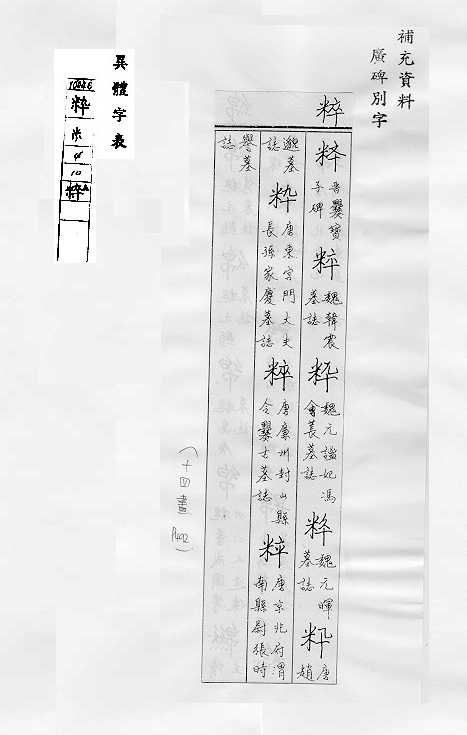 補充資料
廣碑別字
粹
粹 晉爨寶子碑 粹 魏韓震墓誌 粋 魏元謐妃馮會墓誌 粹 魏元暉墓誌 粋 唐趙
邈墓誌 粋 唐東宮門大夫長孫家慶墓誌 粹 唐廉州封山縣令爨古墓誌 粹 唐京兆府渭南縣尉張時
譽墓誌
(十四畫 P402)
異體字表
粋
米
4
10
粹